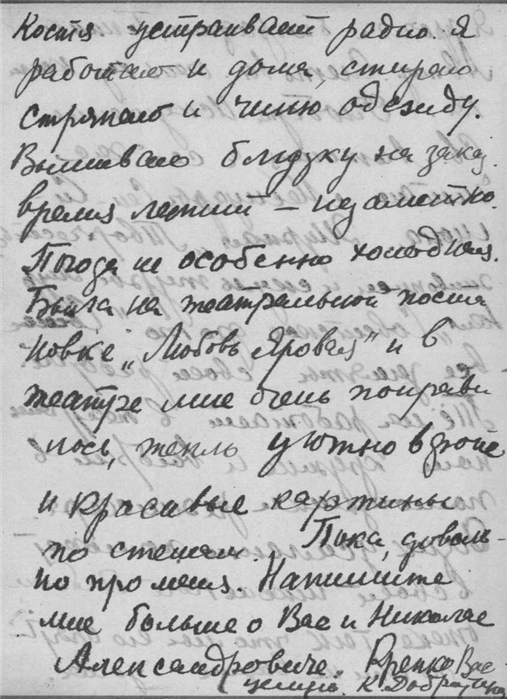 Костя устраивает радио. Я
работаю и дома, стираю
стряпаю и чиню одежду.
Вышиваю блузку на заказ.
время летит — незаметно.
Погода не особенно холодная.
Была на театральной поста
новке „Любовь Яровая" и в
театре мне очень понрави
лось, тепло уютно в фойе
и красивые картины
по стенам. Пока, доволь-
но про меня. Напишите
мне больше о Вас и Николае
Александровиче. Крепко Вас
целую К.